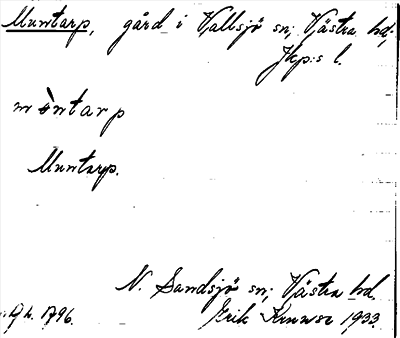 Muntarp, gård i Vallsjö sn; Västra hd;
Jkp:s l.
m ò̀ntarp
Muntarp.
N. Sandsjö sn; Västra hd.
1796. Erik 1933.